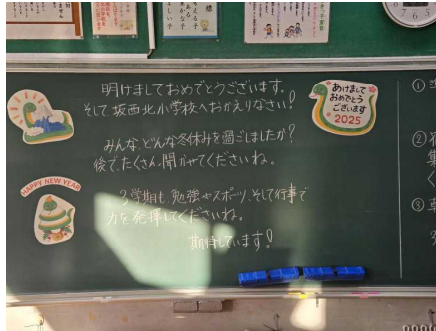 明けましておめでとうございます。
そして坂西北小学校へおかえりなさい!
みんな、どんな冬休みを過ごしましたか?
後で、たくさん聞かせてくださいね。
3学期も、勉強やスポーツ、そして行事で
力を発揮してくださいね。
期待しています!
あけまして
おめでとう
ございます
2025
HAPPY NEW YEAR
①
②
③